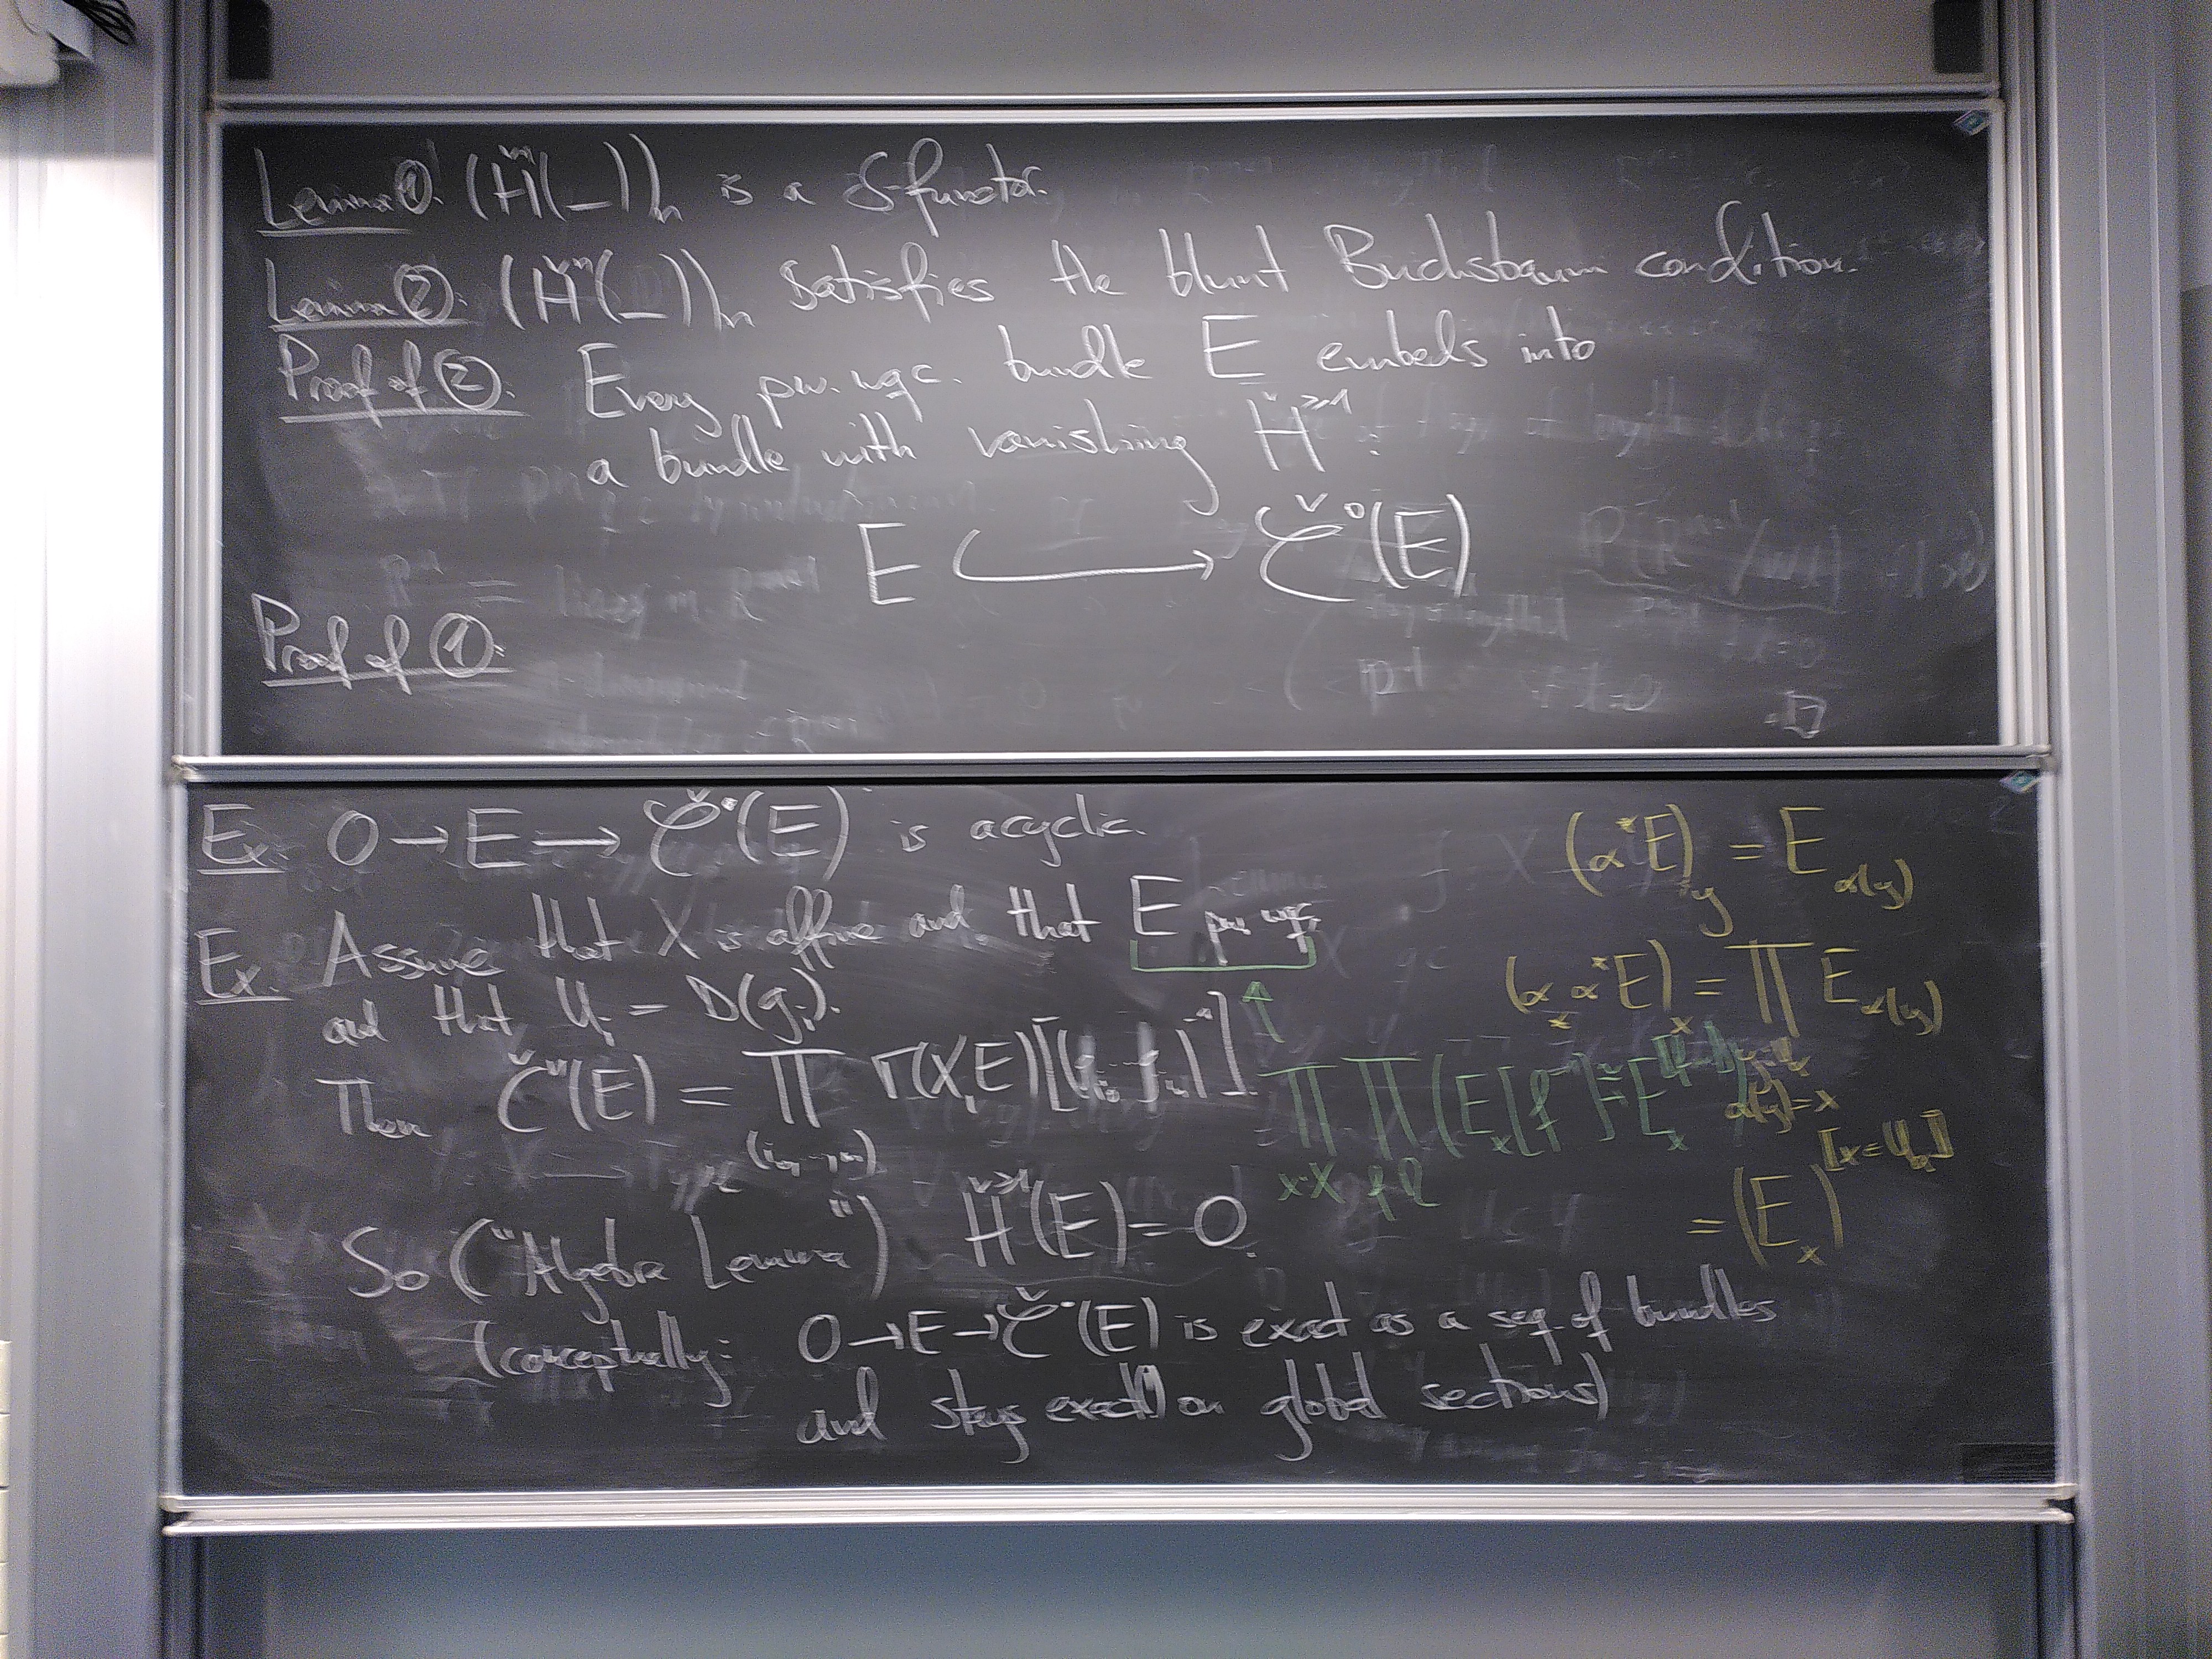 Lemma ①: (Ȟⁿ(_))ₙ is a δ-functor.
Lemma ②: (Ȟⁿ(_))ₙ satisfies the blunt Buchsbaum condition.
Proof of ②: Every pw. wqc. bundle E embeds into
a bundle with vanishing Ȟ^{≥1}:
E ↪ 𝒞̌⁰(E)
Proof of ①:
□
Ex. 0 → E → 𝒞̌^•(E) is acyclic.
Ex. Assume that X is affine and that E pw. wqc.
and that Uᵢ = D(gᵢ).
Then Čⁿ(E) = ∏_{(i₀,…,iₙ)} Γ(X,E)[(g_{i₀}…g_{iₙ})⁻¹].
So ("Algebra Lemma") Ȟ^{≥1}(E) = 0.
(conceptually: 0 → E → 𝒞̌^•(E) is exact as a seq. of bundles
and stays exact on global sections)
(α*E)_y = E_{α(y)}
(α_* α*E)_x = ∏ E_{α(y)}
α(y)=x
= (E_x)
∏ ∏ (E_x[f⁻¹] = E_x
x:X f:R